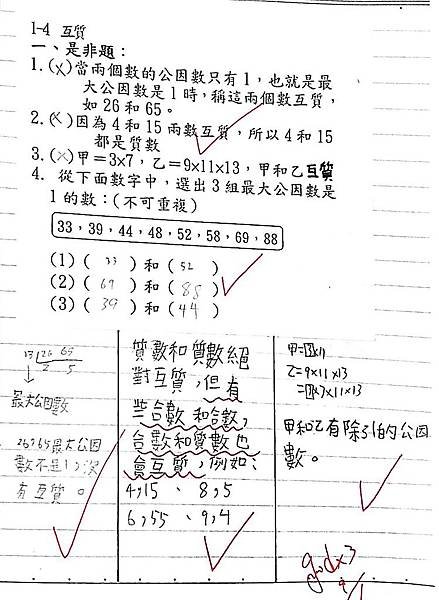 1-4 互質
一、是非題：
1.(×)當兩個數的公因數只有1，也就是最
大公因數是1時，稱這兩個數互質，
如26和65。
2.(×)因為4和15兩數互質，所以4和15
都是質數
3.(×)甲＝3×7，乙＝9×11×13，甲和乙互質
4. 從下面數字中，選出3組最大公因數是
1的數：(不可重複)
33，39，44，48，52，58，69，88
(1) ( 33 ) 和 ( 52 )
(2) ( 69 ) 和 ( 88 )
(3) ( 39 ) 和 ( 44 )
13 26 65
2 5
最大公因數
26和65最大公因
數不是1，沒
有互質。
質數和質數絕
對互質，但有
些合數和合數，
合數和質數也
會互質，例如：
4,15、8,5
6,55、9,4
乙=9×11×13
甲和乙有除了1的公因
數。
god×3